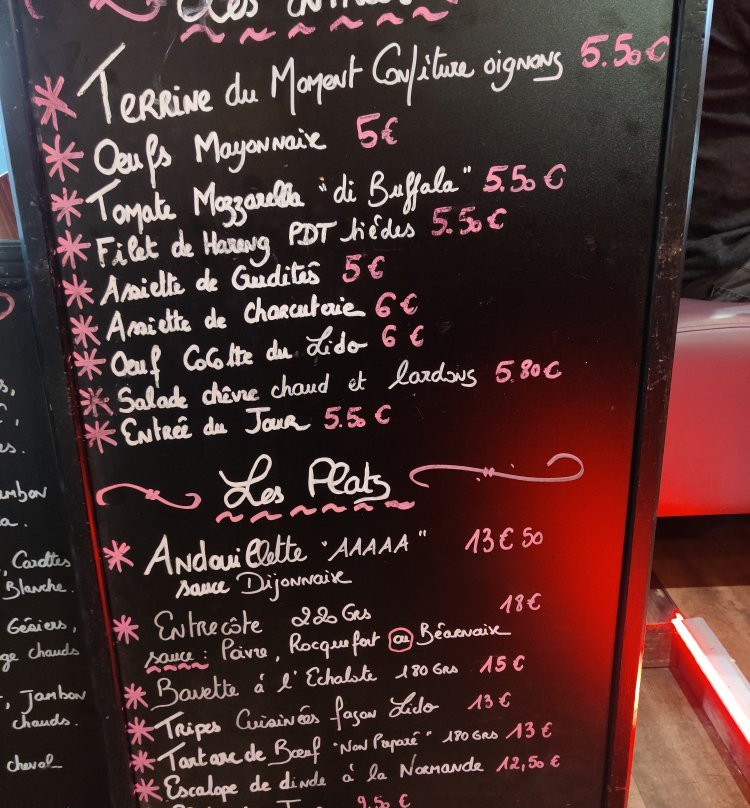 Les
Terrine du Moment Confiture oignons 5.50€
Oeufs Mayonnaise 5€
Tomate Mozzarella "di Buffala" 5.50€
Filet de Hareng PDT tièdes 5.50€
Assiette de Crudités 5€
Assiette de Charcuterie 6€
Oeuf Cocotte du Lido 6€
Salade chèvre chaud et lardons 5.80€
Entrée du Jour 5.50€
Les Plats
Andouillette "AAAAA" 13€50
sauce Dijonnaise
Entrecôte 220 Grs 18€
sauce : Poivre, Rocquefort ou Béarnaise
Bavette à l'Echalote 180 Grs 15€
Tripes Cuisinées façon Lido 13€
Tartare de Bœuf "Non Préparé" 180 Grs 13€
Escalope de dinde à la Normande 12,50€
9.50€
Carottes
Blanche.
Gésiers,
chauds
, Jambon
chauds.
cheval